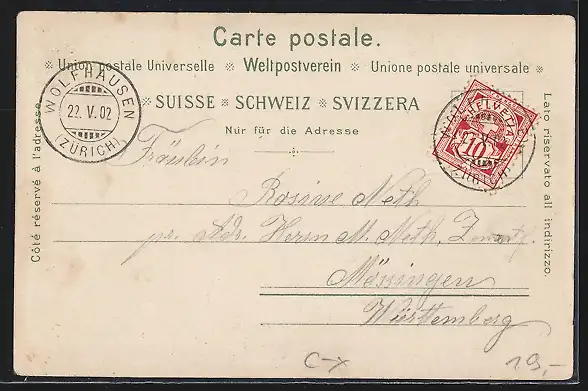 Carte postale.
Union postale Universelle ※ Weltpostverein ※ Unione postale universale
※ SUISSE ※ SCHWEIZ ※ SVIZZERA
Nur für die Adresse
Côté réservé à l'adresse.
Lato riservato all indirizzo.
WOLFHAUSEN
22. V. 02
(ZÜRICH)
HELVETIA
10
Fräulein
Rosine Neth
pr. Adr. Herrn M. Neth,
Mössingen
Württemberg
C-x
19,-